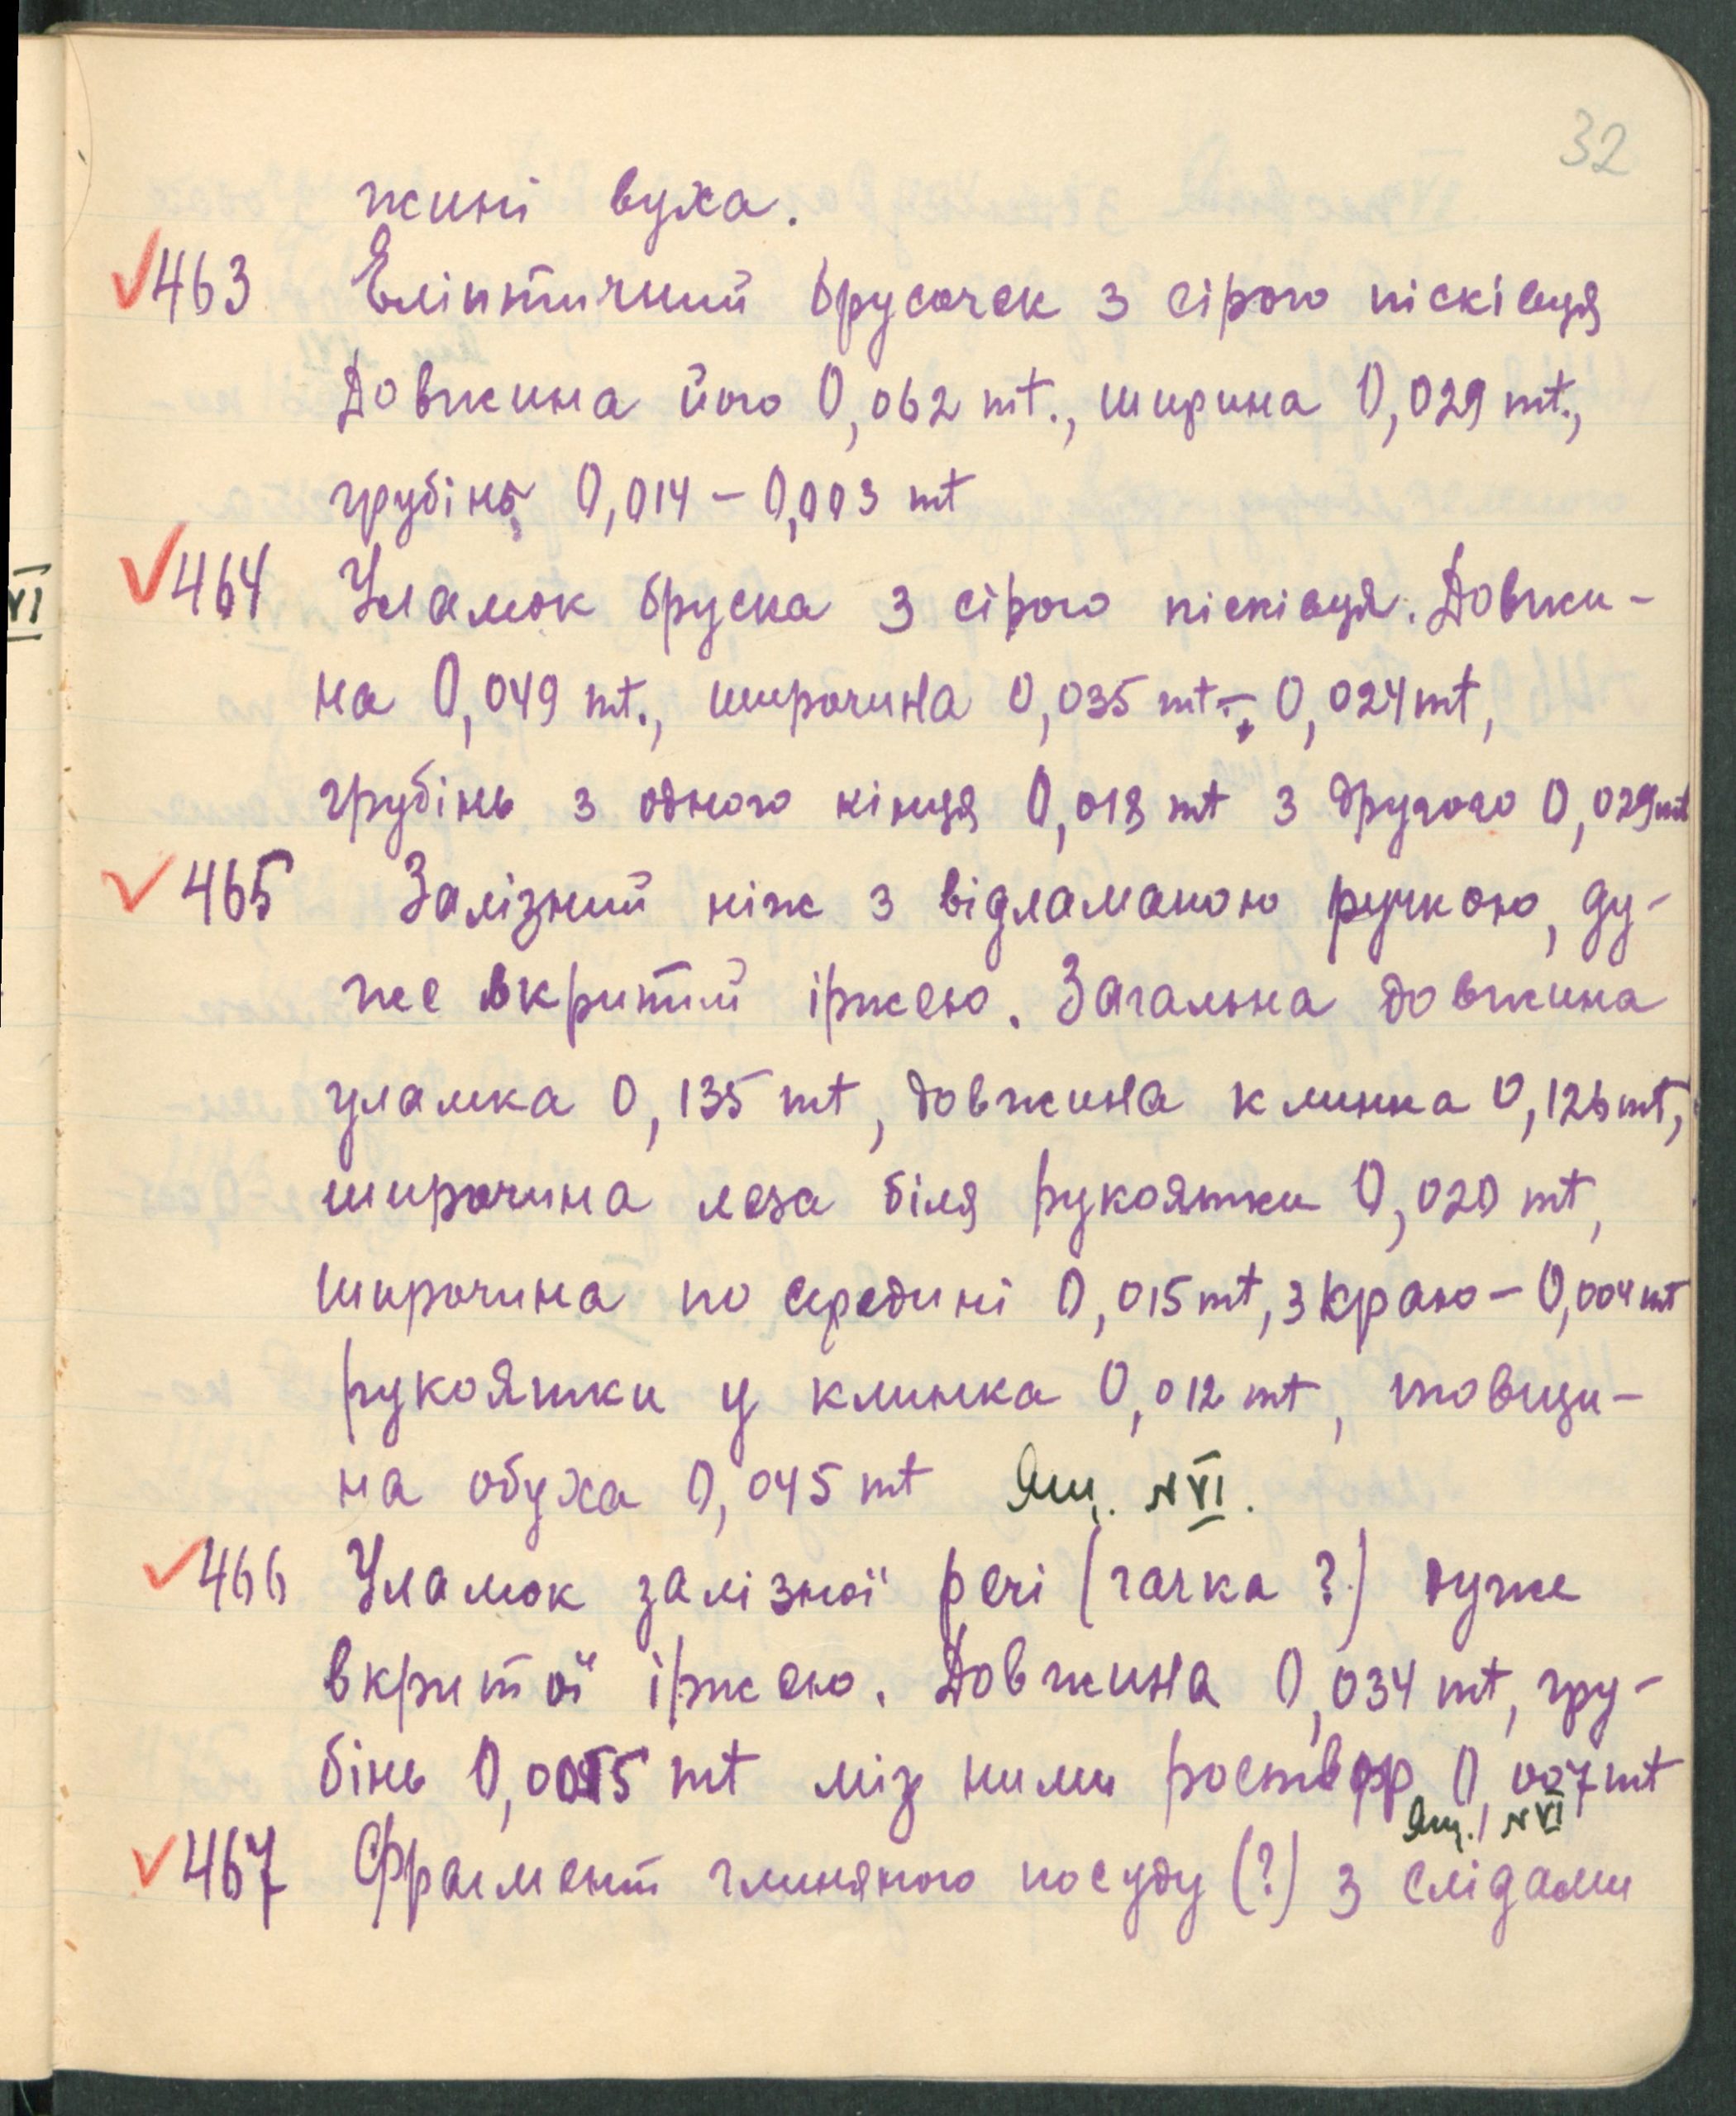 32
жині вуха.
✓463 Еліптичний брусочек з сірого пісківця
Довжина його 0,062 mt., ширина 0,029 mt.,
грубінь 0,014 – 0,003 mt
VI
✓464 Уламок бруска з сірого пісківця. Довжи-
на 0,049 mt., широчина 0,035 mt. – 0,024 mt,
грубінь з одного кінця 0,018 mt з другого 0,029 mt
✓465 Залізний ніж з відламаною ручкою, ду-
же вкритий іржею. Загальна довжина
уламка 0,135 mt, довжина клинка 0,126 mt,
широчина леза біля рукоятки 0,020 mt,
широчина по середині 0,015 mt, з краю – 0,004 mt
рукоятки у клинка 0,012 mt, товщи-
на обуха 0,045 mt Ящ. N VI.
✓466 Уламок залізної речі (гачка ?) дуже
вкритої іржею. Довжина 0,034 mt, гру-
бінь 0,0055 mt між ними роствор 0,007 mt
Ящ. N VI
✓467 Фрагмент глиняного посуду (?) з слідами